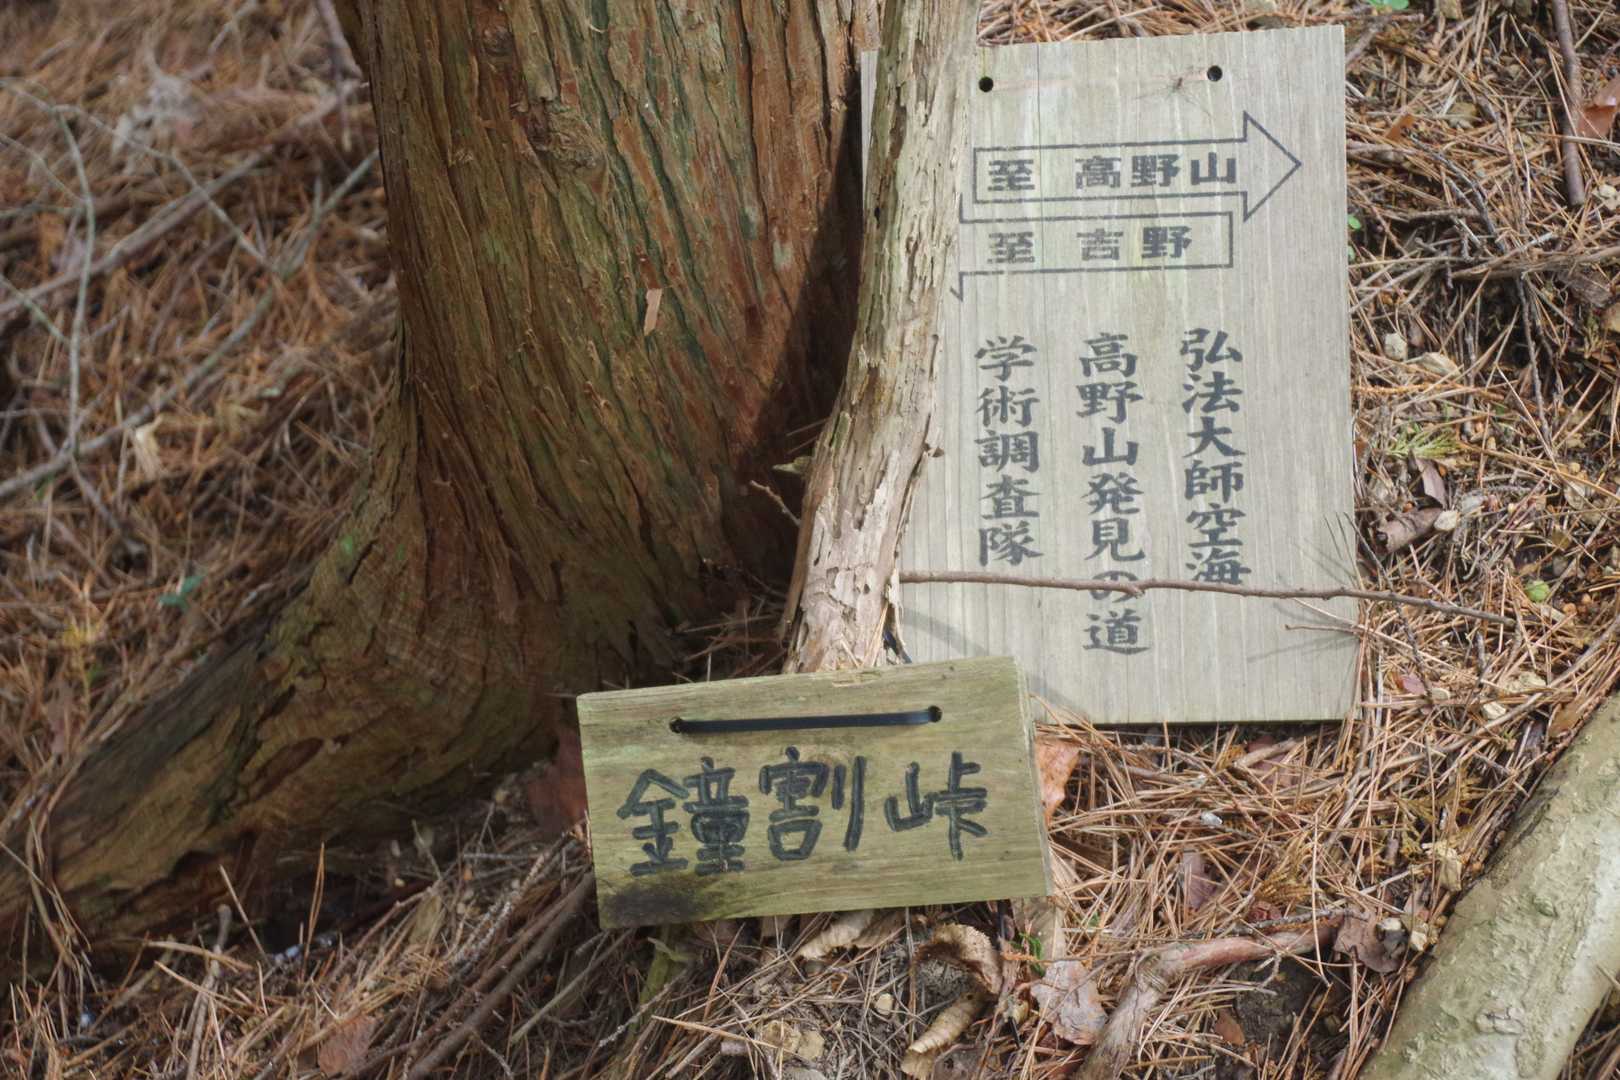 至 高野山
至 吉野
弘法大師空海
高野山発見の道
学術調査隊
鐘割峠